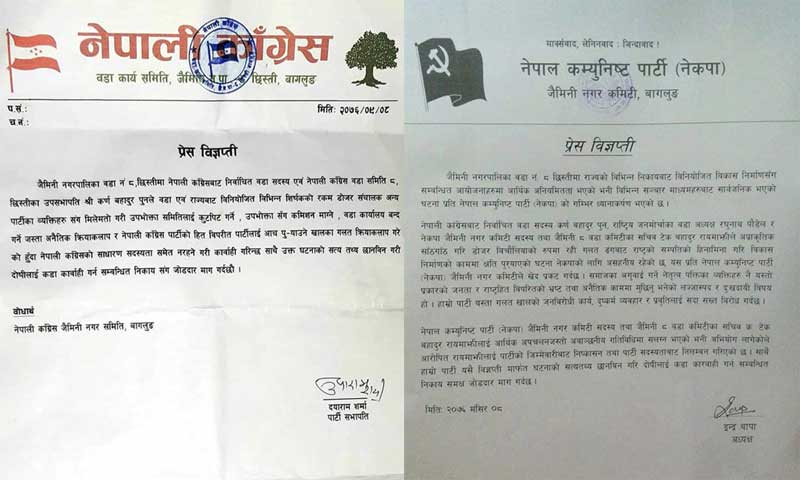 नेपाली काँग्रेस
वडा कार्य समिति, छिस्ती, बागलुङ
प.सं.:
च.नं.:
मितिः २०७६/०८/०८
प्रेस विज्ञप्ती
जैमिनी नगरपालिका वडा नं ८,छिस्तीमा नेपाली कांग्रिसबाट निर्वाचित वडा सदस्य एवं नेपाली कांग्रेस वडा समिति ८,
छिस्तीका उपसभापति श्री कर्ण बहादुर पुनले वडा एवं राज्यबाट विनियोजित विभिन्न शिर्षकको रकम डोजर संचालक अन्य
पार्टीका व्यक्तिहरु संग मिलेमतो गरी उपभोक्ता समितिलाई कुटपिट गर्ने , उपभोक्ता संग कमिशन माग्ने , वडा कार्यालय बन्द
गर्ने जस्ता अनैतिक क्रियाकलाप र नेपाली कांग्रेस पार्टीको हित बिपरीत पार्टीलाई आच पु-याउने खालका गलत क्रियाकलाप गरे
को हुँदा नेपाली कांग्रिसको साधारण सदस्यता समेत नरहने गरी कार्वाही गरिन्छ साथै उक्त घटनाको सत्य तथ्य छानविन गरी
दोषीलाई कडा कार्वाही गर्न सम्बन्धित निकाय संग जोडदार माग गर्दछौ ।
वोधार्थ
नेपाली कांग्रेस जैमिनी नगर समिति, बागलुङ
दयाराम शर्मा
पार्टी सभापति
मार्क्सवाद, लेनिनवाद : जिन्दावाद !
नेपाल कम्युनिष्ट पार्टी (नेकपा)
जैमिनी नगर कमिटी, बागलुङ
प्रेस विज्ञप्ती
जैमिनी नगरपालिका वडा नं. ८ छिस्तीमा राज्यको विभिन्न निकायबाट विनियोजित विकास निर्माणसँग
सम्बन्धित आयोजनाहरुमा आर्थिक अनियमितता भएको भनी विभिन्न सञ्चार माध्यमहरुबाट सार्वजनिक भएको
घटना प्रति नेपाल कम्युनिष्ट पार्टी (नेकपा) को गम्भिर ध्यानाकर्षण भएको छ ।
नेपाली कांग्रेसबाट निर्वाचित वडा सदस्य कर्ण बहादुर पुन, राष्ट्रिय जनमोर्चाका वडा अध्यक्ष रघुनाथ पौडेल र
नेकपा जैमिनी नगर कमिटी सदस्य तथा जैमिनी ८ वडा कमिटीका सचिव टेक बहादुर रायमाझीले अप्राकृतिक
साँठगाँठ गरि डोजर विचौलियाको रुपमा रही गलत ढंगबाट राष्ट्रको सम्पतिको हिनामिना गरि विकास
निर्माणको काममा क्षति पुर्‍याएको घटना नेकपाको लागि असहनीय रहेको छ, यस प्रति नेपाल कम्युनिष्ट पार्टी
(नेकपा) जैमिनी नगर कमिटीले खेद प्रकट गर्दछ । समाजका अगुवाई गर्ने नेतृत्व पंक्तिका व्यक्तिहरु नै यस्तो
प्रकारको जनता र राष्ट्रहित विपरितको भ्रष्ट तथा अनैतिक काममा मुछिनु भनेको लज्जास्पद र दुखदायी विषय
हो । हाम्रो पार्टी यस्ता गलत खालको जनविरोधी कार्य, दुष्कर्म व्यवहार र प्रवृतिलाई सदा सख्त विरोध गर्दछ ।
नेपाल कम्युनिष्ट पार्टी (नेकपा) जैमिनी नगर कमिटी सदस्य तथा जैमिनी ८ वडा कमिटीका सचिव क. टेक
बहादुर रायमाझीलाई आर्थिक अपचलनजस्तो अवाञ्छनीय गतिविधिमा संलग्न भएको भनी अभियोग लागेकोले
आरोपित रायमाझीलाई पार्टीको जिम्मेवारीबाट निष्कासन तथा पार्टी सदस्यताबाट निलम्बन गरिएको छ । साथै
हाम्रो पार्टी यसै विज्ञप्ती मार्फत घटनाको सत्यतथ्य छानविन गरि दोषीलाई कडा कारवाही गर्न सम्बन्धित
निकाय समक्ष जोडदार माग गर्दछ ।
मितिः २०७६ मंसिर ०८
इन्द्र थापा
अध्यक्ष